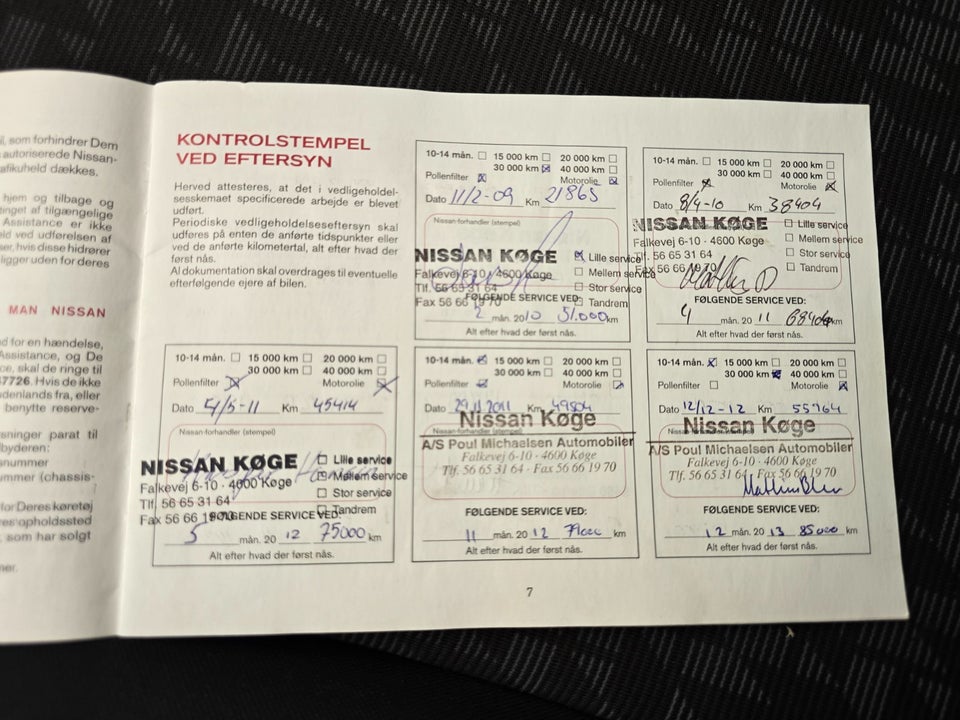 l, som forhindrer Dem
autoriserede Nissan-
afikuheld dækkes.
hjem og tilbage og
tinget af tilgængelige
Assistance er ikke
eld ved udførelsen af
ser, hvis disse hidrører
ligger uden for deres
MAN NISSAN
d for en hændelse,
Assistance, og De
ce, skal de ringe til
7726. Hvis de ikke
denlands fra, eller
benytte reserve-
sninger parat til
byderen:
snummer
ummer (chassis-
for Deres køretøj
res opholdssted
, som har solgt
mer.
KONTROLSTEMPEL
VED EFTERSYN
Herved attesteres, at det i vedligeholdel-
sesskemaet specificerede arbejde er blevet
udført.
Periodiske vedligeholdelseseftersyn skal
udføres på enten de anførte tidspunkter eller
ved de anførte kilometertal, alt efter hvad der
først nås.
Al dokumentation skal overdrages til eventuelle
efterfølgende ejere af bilen.
10-14 mån. 15 000 km 20 000 km
30 000 km 40 000 km
Pollenfilter Motorolie
Dato 11/2-09 Km 21865
Nissan-forhandler (stempel)
NISSAN KØGE
Falkevej 6-10 · 4600 Køge
Tlf. 56 65 31 64
Fax 56 66 19 70
Lille service
Mellem service
Stor service
Tandrem
FØLGENDE SERVICE VED:
2 mån. 2010 51.000 km
Alt efter hvad der først nås.
10-14 mån. 15 000 km 20 000 km
30 000 km 40 000 km
Pollenfilter Motorolie
Dato 8/4-10 Km 38404
NISSAN KØGE
Falkevej 6-10 · 4600 Køge
Tlf. 56 65 31 64
Fax 56 66 19 70
Lille service
Mellem service
Stor service
Tandrem
FØLGENDE SERVICE VED:
4 mån. 20 11 68404 km
Alt efter hvad der først nås.
10-14 mån. 15 000 km 20 000 km
30 000 km 40 000 km
Pollenfilter Motorolie
Dato 5/5-11 Km 45414
Nissan-forhandler (stempel)
NISSAN KØGE
Falkevej 6-10 · 4600 Køge
Tlf. 56 65 31 64
Fax 56 66 19 70
Lille service
Mellem service
Stor service
Tandrem
FØLGENDE SERVICE VED:
5 mån. 20 12 75000 km
Alt efter hvad der først nås.
10-14 mån. 15 000 km 20 000 km
30 000 km 40 000 km
Pollenfilter Motorolie
Dato 29.11 2011 Km 49504
Nissan Køge
Nissan-forhandler (stempel)
A/S Poul Michaelsen Automobiler
Falkevej 6-10 · 4600 Køge
Tlf. 56 65 31 64 · Fax 56 66 19 70
FØLGENDE SERVICE VED:
11 mån. 20 12 km
Alt efter hvad der først nås.
10-14 mån. 15 000 km 20 000 km
30 000 km 40 000 km
Pollenfilter Motorolie
Dato 12/12-12 Km 55764
Nissan Køge
A/S Poul Michaelsen Automobiler
Falkevej 6-10 · 4600 Køge
Tlf. 56 65 31 64 · Fax 56 66 19 70
FØLGENDE SERVICE VED:
12 mån. 20 13 85000 km
Alt efter hvad der først nås.
7